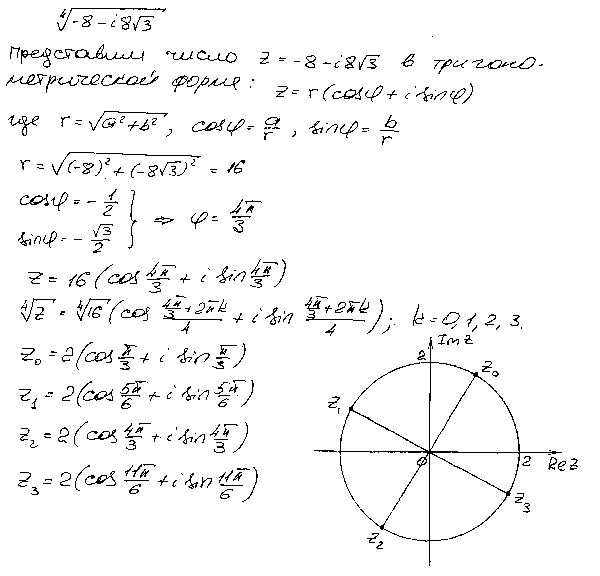 ∜(-8 - i8√3)
Представим число z = -8 - i8√3 в тригоно-
метрической форме: z = r(cosφ + i sinφ)
где r = √(a² + b²), cosφ = a/r, sinφ = b/r
r = √((-8)² + (-8√3)²) = 16
cosφ = -1/2
sinφ = -√3/2 } ⇒ φ = 4π/3
z = 16(cos 4π/3 + i sin 4π/3)
∜z = ∜16(cos (4π/3 + 2πk)/4 + i sin (4π/3 + 2πk)/4); k = 0, 1, 2, 3.
z₀ = 2(cos π/3 + i sin π/3)
z₁ = 2(cos 5π/6 + i sin 5π/6)
z₂ = 2(cos 4π/3 + i sin 4π/3)
z₃ = 2(cos 11π/6 + i sin 11π/6)
Im z
2
z₀
z₁
0
2
Re z
z₃
z₂